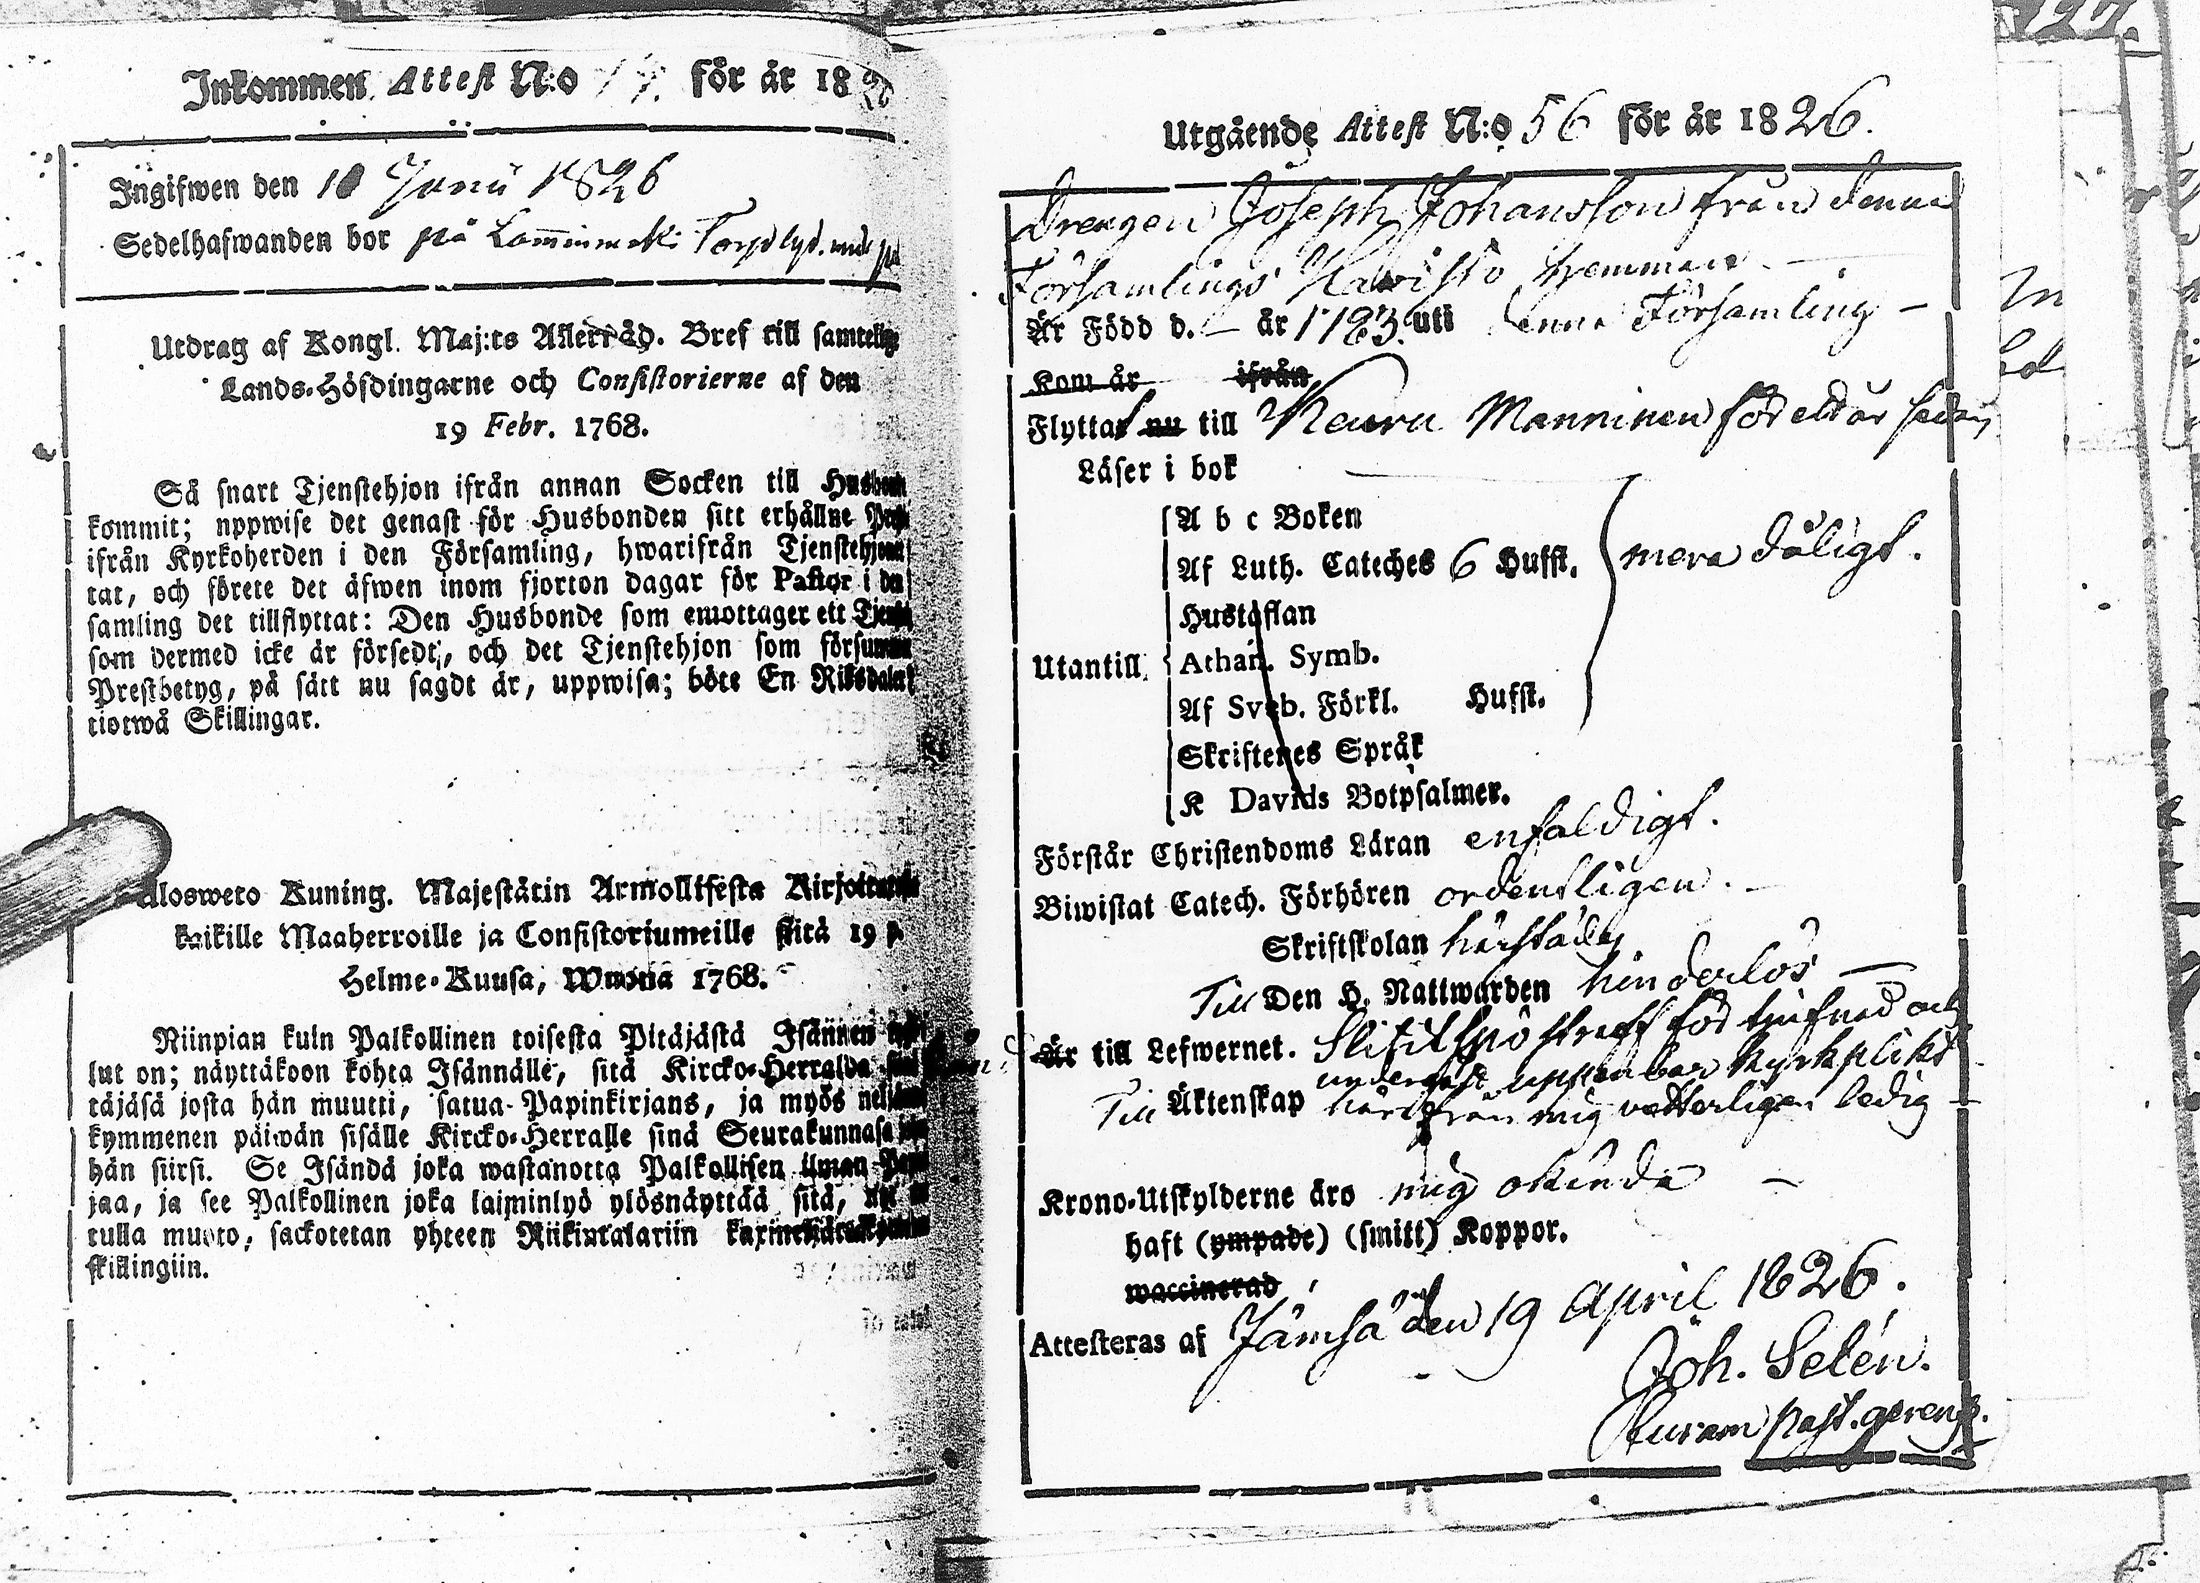 Inkommen Attest N:o för år 18
Ingifwen den 10 Junii 1826
Sedelhafwanden bor på
Utdrag af Kongl. Maj:ts Allernåd. Bref till samtelige
Lands-Höfdingarne och Consistorierne af den
19 Febr. 1768.
Så snart Tjenstehjon ifrån annan Socken till
kommit; uppwise det genast för Husbonden sitt erhållne
ifrån Kyrkoherden i den Församling, hwarifrån
tat, och förete det äfwen inom fjorton dagar för Pastor i
samling det tillflyttat: Den Husbonde som emottager ett
som dermed icke är försedt, och det Tjenstehjon som
Prestbetyg, på sätt nu sagdt är, uppwisa; böte En Riksdaler
tiotwå Skillingar.
Ulosweto Kuning. Majestätin Armollisesta
kaikille Maaherroille ja Consistoriumeille siitä 19 p.
Helme-Kuusa, Wuona 1768.
Niinpian kuin Palkollinen toisesta Pitäjästä Isännen
lut on; näyttäköön kohta Isännälle, sitä Kircko-Herralda
täjäsä josta hän muutti, satua Papinkirjans, ja myös
kymmenen päiwän sisälle Kircko-Herralle sinä Seurakunnasa
hän siirsi. Se Isändä joka wastanotta Palkollisen ilman
jaa, ja see Palkollinen joka laiminlyö ylösnäyttää sitä,
tulla muoto, sackotetan yhteen Riikintalariin
skillingiin.
Utgående Attest N:o 56 för år 1826.
Drengen Joseph Johansson från denna
Församlings Hawisto hemman
Är Född d. — år 1783 uti denna Församling —
Kom år ifrån
Flyttat nu till Keuru Manninen för ett år sedan
Läser i bok
A b c Boken
Af Luth. Cateches 6 Hufst. mera dåligt.
Hustaflan
Utantill Athan. Symb.
Af Sveb. Förkl. Hufst.
Skriftenes Språk
K Davids Botpsalmer.
Förstår Christendoms Läran enfaldigt.
Biwistat Catech. Förhören ordentligen.
Skriftskolan härstädes
Till Den H. Nattwarden hinderlös —
Är till Lefwernet. Slitit spöstraff för tjufnad och
undergått uppenbar kyrkplikt
Till Äktenskap härifrån mig vetterligen ledig —
Krono-Utskylderne äro mig okända —
haft (ympade) (smitt) Koppor.
waccinerad
Attesteras af Jämsä den 19 April 1826.
Joh. Selén.
past.